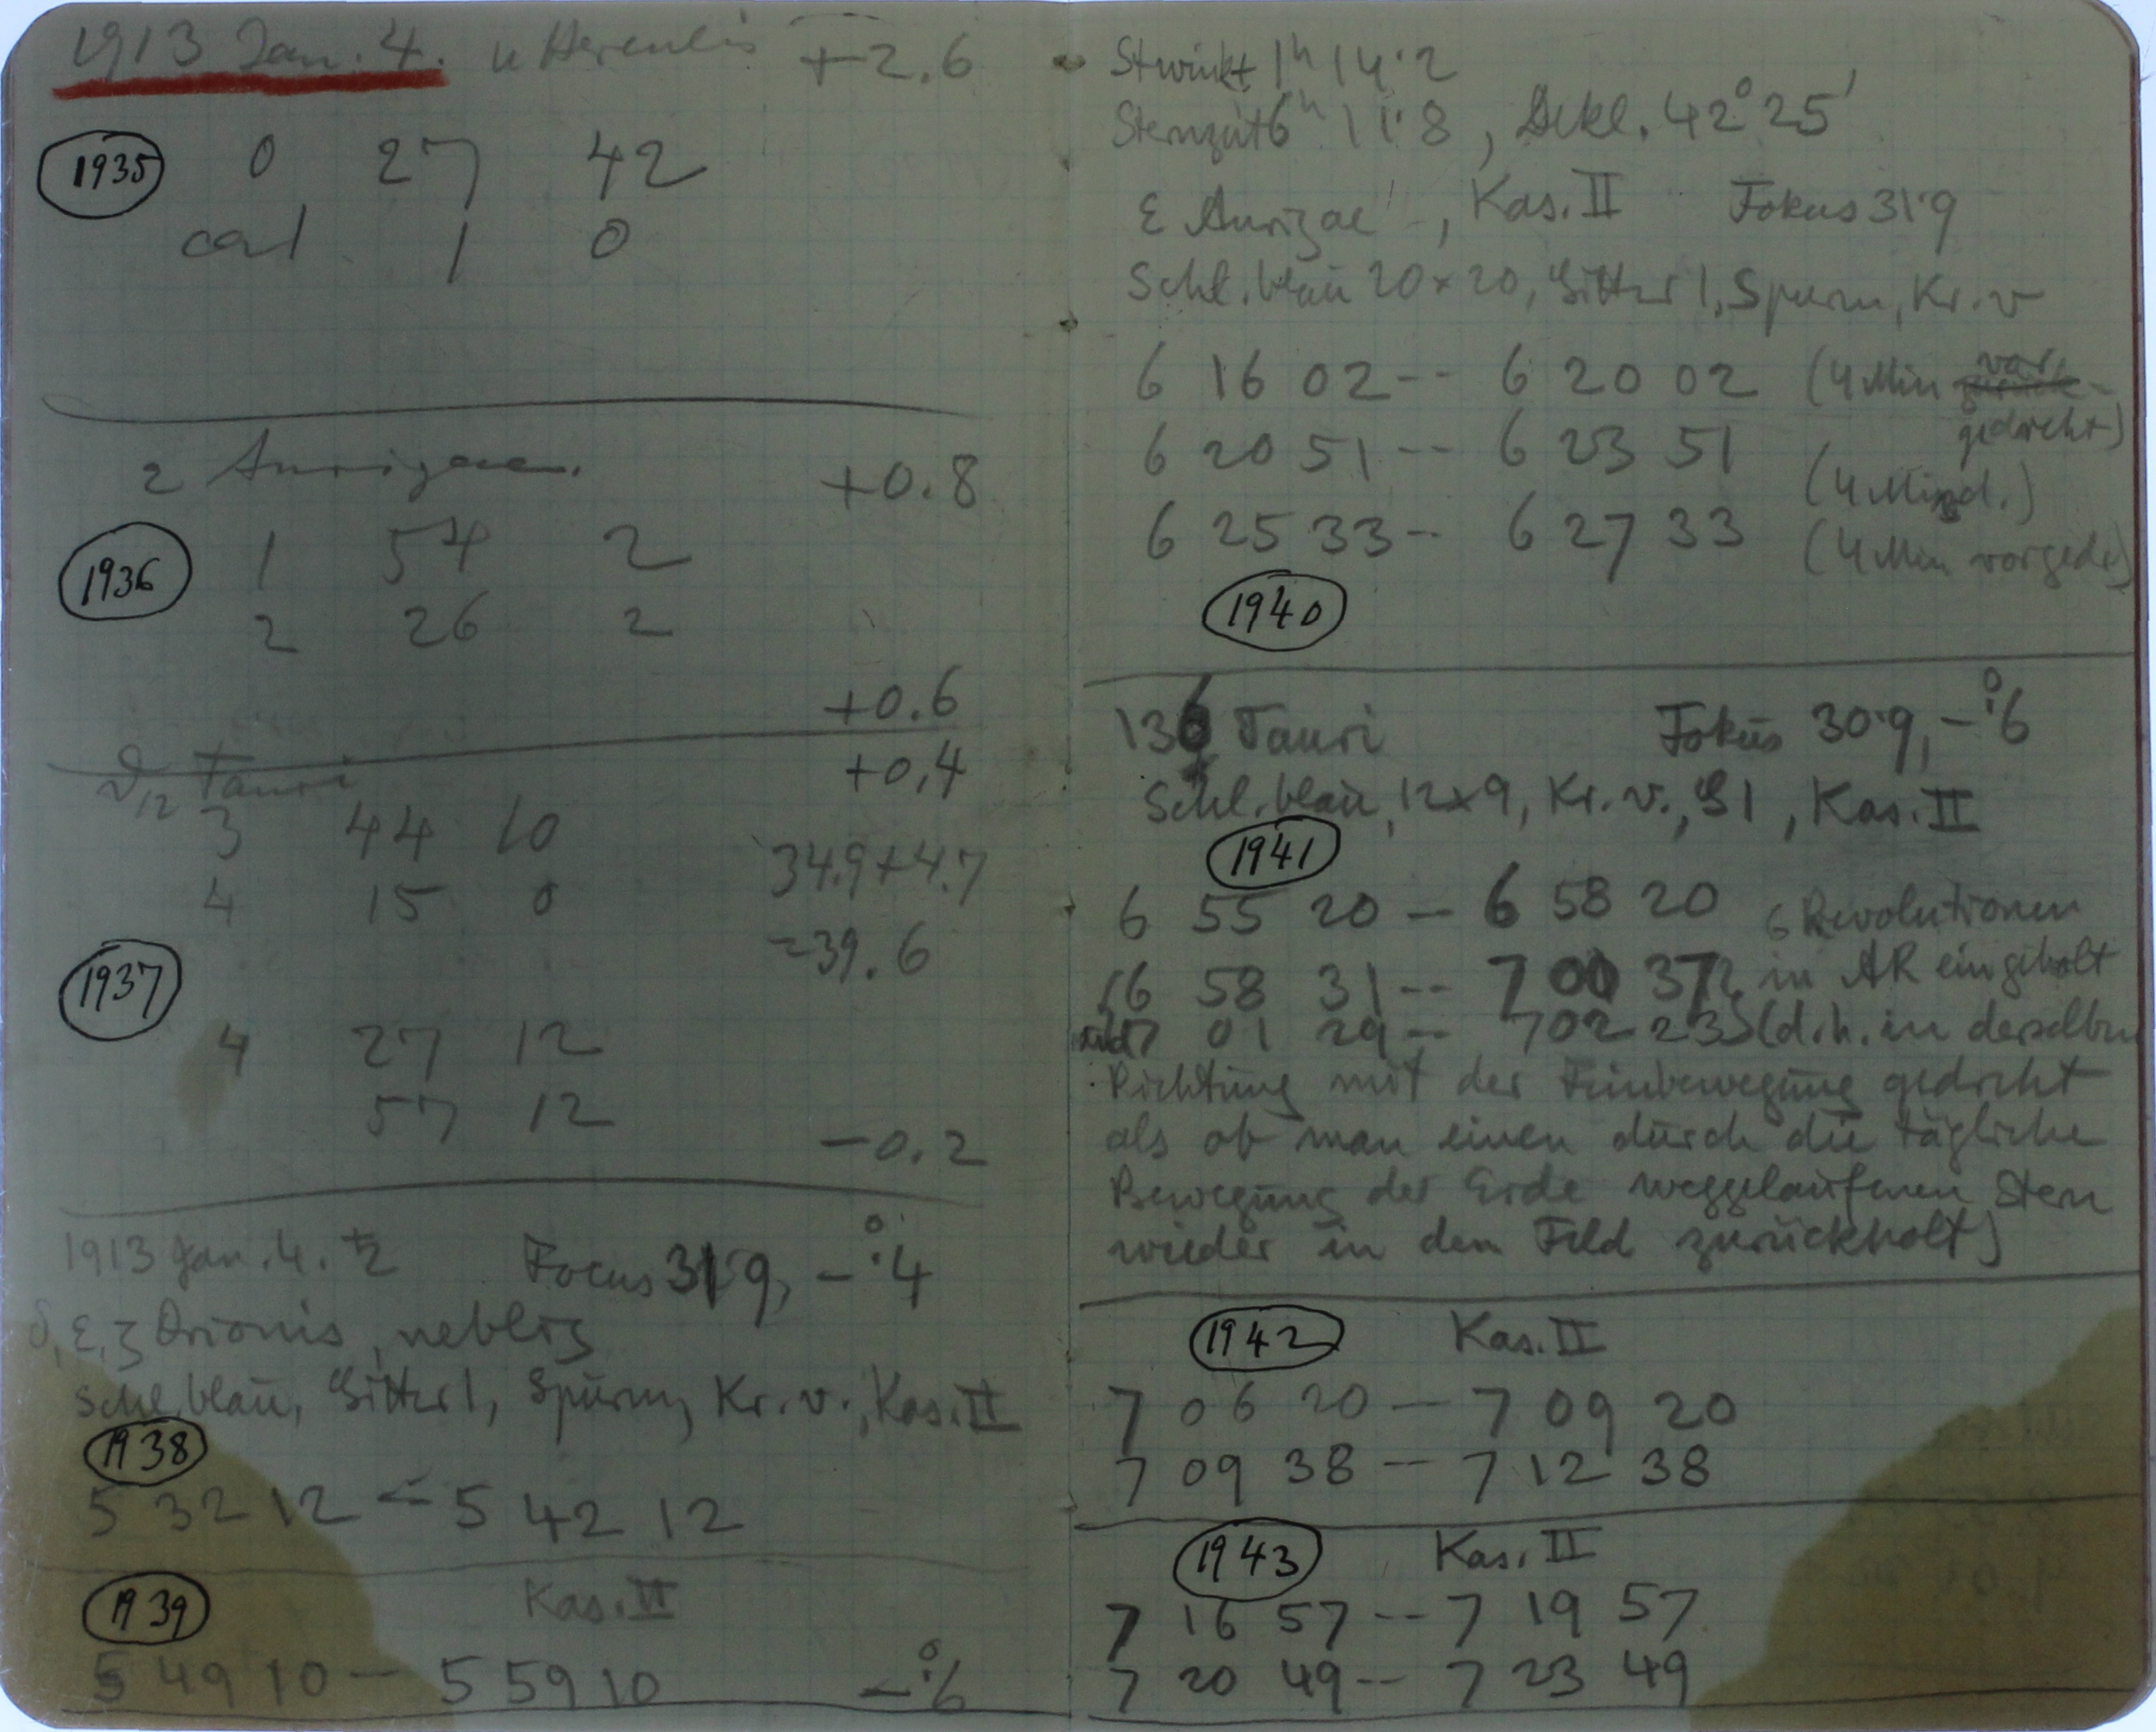 1913 Jan. 4. u Herculis +2.6
1935 0 27 42
cal 1 0
2 Aurigae. +0.8
1936 1 54 2
2 26 2
+0.6
ϑ12 Tauri +0.4
3 44 10
34.9+4.7
4 15 0
=39.6
1937
4 27 12
57 12
-0.2
1913 Jan. 4. Focus 31.9, -°.4
δ, ε, ζ Orionis, neblig
Schl. blau, Gitter 1, Spurn, Kr. v., Kas. II
1938
5 32 12 - 5 42 12
1939 Kas. II
5 49 10 - 5 59 10 -°.6
Stwinkt 1h 14.2
Sternzeit 6h 11.8, Dekl. 42° 25'
ε Aurigae, Kas. II Fokus 31.9
Schl. blau 20×20, Gitter 1, Spurn, Kr. v
6 16 02 -- 6 20 02 (4 Min vor
gedreht)
6 20 51 -- 6 23 51
(4 Min gd.)
6 25 33 -- 6 27 33 (4 Min vorgedr)
1940
136 Tauri Fokus 30.9, -°.6
Schl. blau, 12×9, Kr. v., G1, Kas. II
1941
6 55 20 - 6 58 20 6 Revolutionen
6 58 31 -- 7 00 37 in AR eingeholt
7 01 29 -- 7 02 23 (d.h. in derselben
Richtung mit der Feinbewegung gedreht
als ob man einen durch die tägliche
Bewegung der Erde weggelaufenen Stern
wieder in den Feld zurückholt)
1942 Kas. II
7 06 20 - 7 09 20
7 09 38 -- 7 12 38
1943 Kas. II
7 16 57 -- 7 19 57
7 20 49 -- 7 23 49